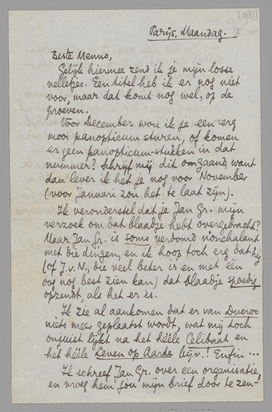 Parijs, Maandag.
Beste Menno,
Gelijk hiermee zend ik je mijn losse
velletjes. Een titel heb ik er nog niet
voor, maar dat komt nog wel, of de
Groeven.
Voor December wou ik je een erg
mooi panopticum sturen, of komen
er geen panopticum-stukken in dat
nummer? Schrijf mij dit omgaand, want
dan lever ik het je nog voor November
(voor Januari zou het te laat zijn).
Ik veronderstel dat je Jan Gr. mijn
verzoek om dat blaadje hebt overgebracht?
Maar Jan Gr. is soms verbomd nonchalant
met die dingen, en ik hoop toch erg dat hij
(of J.v.N., die veel beter is en met één
oog nog best zien kan) dat blaadje spoedig
opzendt, als het er is.
Ik zie al aankomen dat er van Ducroo
niets meer geplaatst wordt, wat mij toch
onjuist lijkt na het héele Celibaat en
het héele Leven op Aarde bijv.! Enfin...
Ik schreef Jan Gr. over een organisatie
en vroeg hem jou mijn brief door te zen-